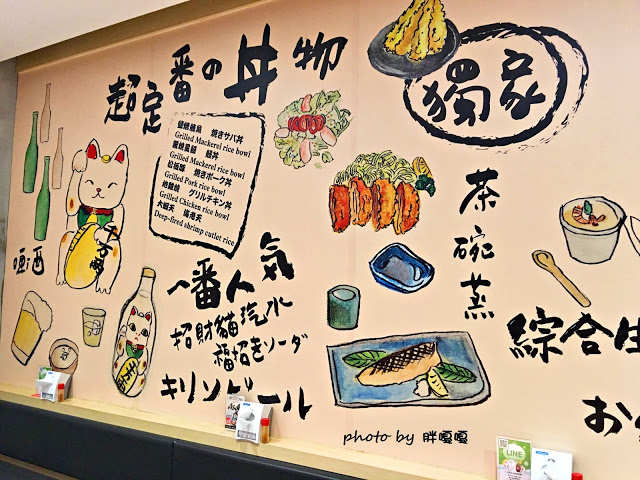 超定番の丼物
焼きサバ丼
Grilled Mackerel rice bowl
鰻丼
Grilled Mackerel rice bowl
松板豬 焼きポーク丼
Grilled Pork rice bowl
グリルチキン丼
Grilled Chicken rice bowl
Deep-fired shrimp cutlet rice
獨家
茶碗蒸
千万両
一番人気
招財貓汽水
福招きソーダ
キリンビール
綜合生
お
LINE
photo by 胖嘎嘎